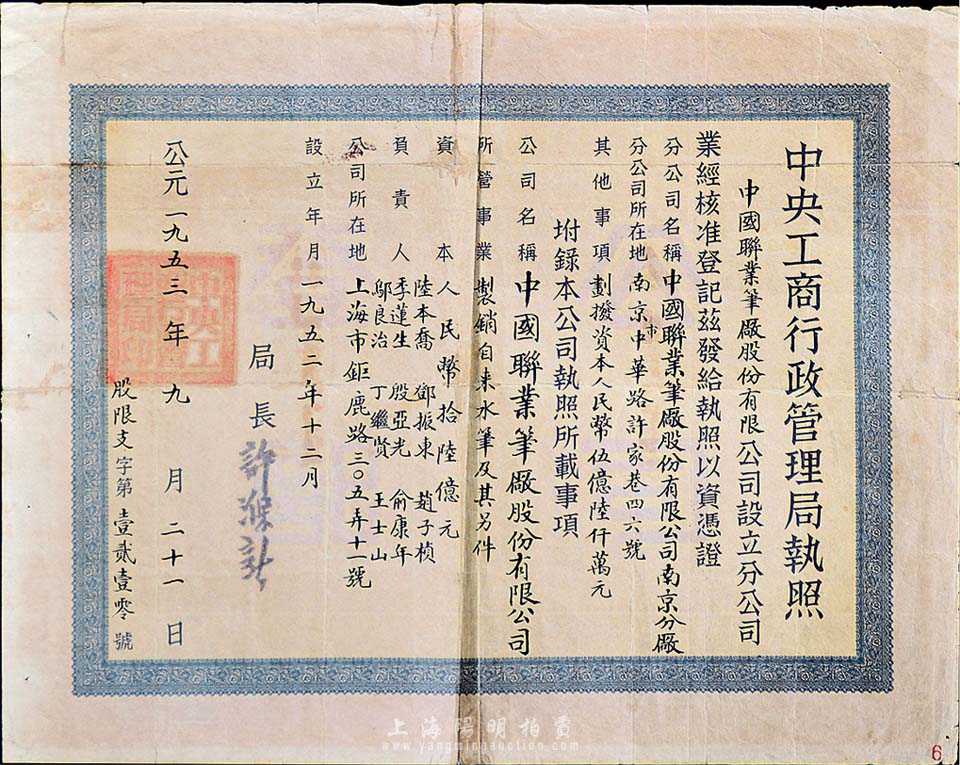 中央工商行政管理局執照
中國聯業筆廠股份有限公司設立分公司
業經核准登記茲發給執照以資憑證
分公司名稱 中國聯業筆廠股份有限公司南京分廠
分公司所在地 南京市中華路許家巷四六號
其他事項 劃撥資本人民幣伍億陸仟萬元
坿錄本公司執照所載事項
公司名稱 中國聯業筆廠股份有限公司
所營事業 製銷自来水筆及其另件
資本 人民幣拾陸億元
負責人 陸本喬 鄧振東 趙子楨
李蓮生 殷亞光 俞康年
鄔良治 丁繼賢 王士山
公司所在地 上海市鉅鹿路三〇五弄十一號
設立年月 一九五二年十二月
局長 許滌新
公元一九五三年九月二十一日
股限支字第壹貳壹零號
上海陽明拍賣
www.yangmingauction.com
6